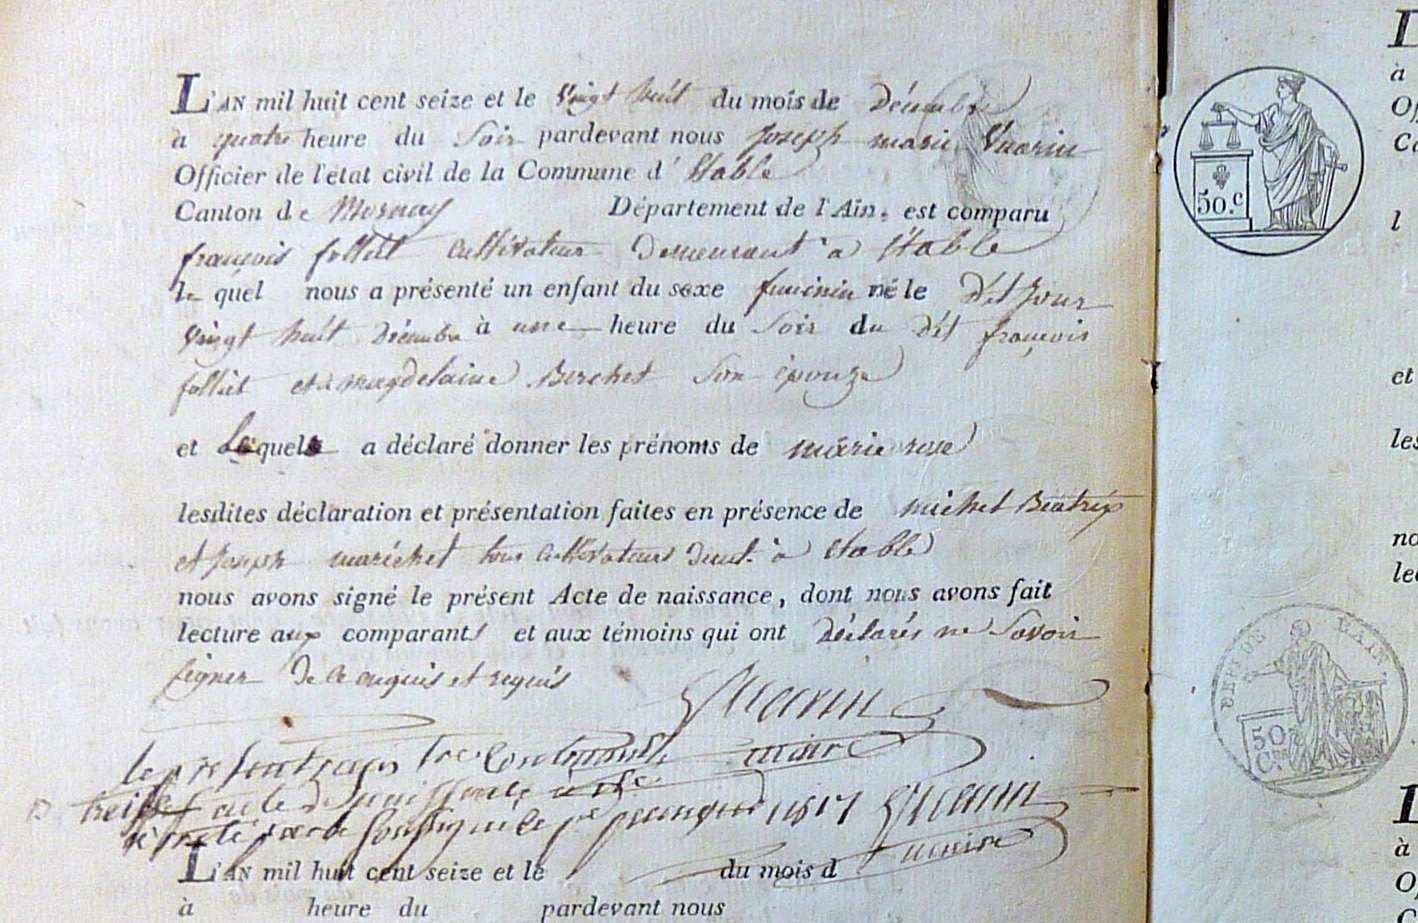 L'AN mil huit cent seize et le vingt huit du mois de décembre
à quatre heure du Soir pardevant nous Joseph marie
Officier de l'état civil de la Commune d' Etable
Canton de Mornay Département de l'Ain, est comparu
françois folliet cultivateur demeurant à Etable
le quel nous a présenté un enfant du sexe feminin né le dit Jour
vingt huit Décembre à une heure du Soir du dit françois
folliet et magdelaine Berchet Son épouze
et Lequel a déclaré donner les prénoms de marie rose
lesdites déclaration et présentation faites en présence de michel Béatrix
et Joseph maréchet tous cultivateurs demt. à Etable
nous avons signé le présent Acte de naissance, dont nous avons fait
lecture aux comparants et aux témoins qui ont déclarés ne Savoir
Signer de ce enquis et requis
le présent
treize acte de naissance
1817
maire
L'AN mil huit cent seize et le du mois d
à heure du pardevant nous
50.c
L
à
Of
Ca
l
et
les
no
lec
DEPT DE L'AIN
50
C.
L
à
O
C